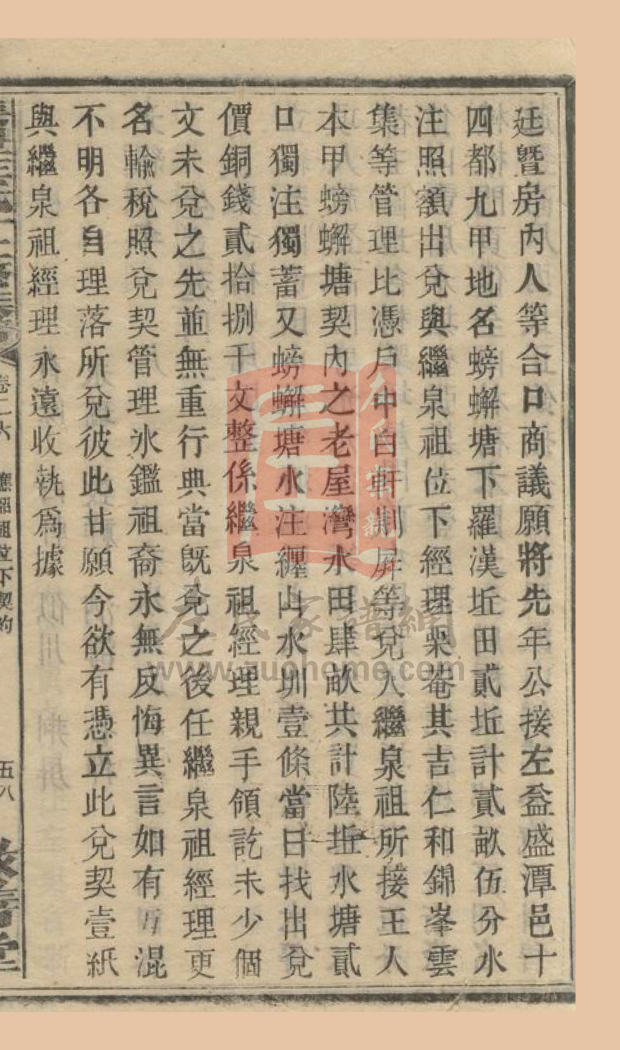 廷暨房內人等合口商議願將先年公接左益盛潭邑十
四都九甲地名螃蠏塘下羅漢坵田貳坵計貳畝伍分水
注照額出兌與繼泉祖位下經理栗菴其吉仁和錦峯雲
集等管理比憑戶中白軒荆屏等兌入繼泉祖所接王人
本甲螃蠏塘契內之老屋灣水田肆畝共計陸坵水塘貳
口獨注獨蓄又螃蠏塘水注纙山水圳壹條當日找出兌
價銅錢貳拾捌千文整係繼泉祖經理親手領訖未少個
文未兌之先並無重行典當旣兌之後任繼泉祖經理更
名輸稅照兌契管理氷鑑祖裔永無反悔異言如有互混
不明各自理落所兌彼此甘願今欲有憑立此兌契壹紙
與繼泉祖經理永遠收執爲據
卷二六 位下契約 五八
左氏家譜網
www.zuohome.com